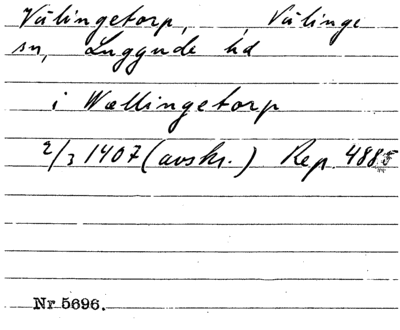 Välingetorp, Välinge
sn, Luggude hd
i Wællingetorp
2/3 1407 (avskr.) Rep. 4885
Nr 5696.